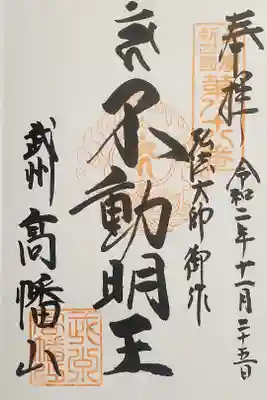 奉拝
令和二年十一月二十五日
弘法大師御作
不動明王
武州
高幡山